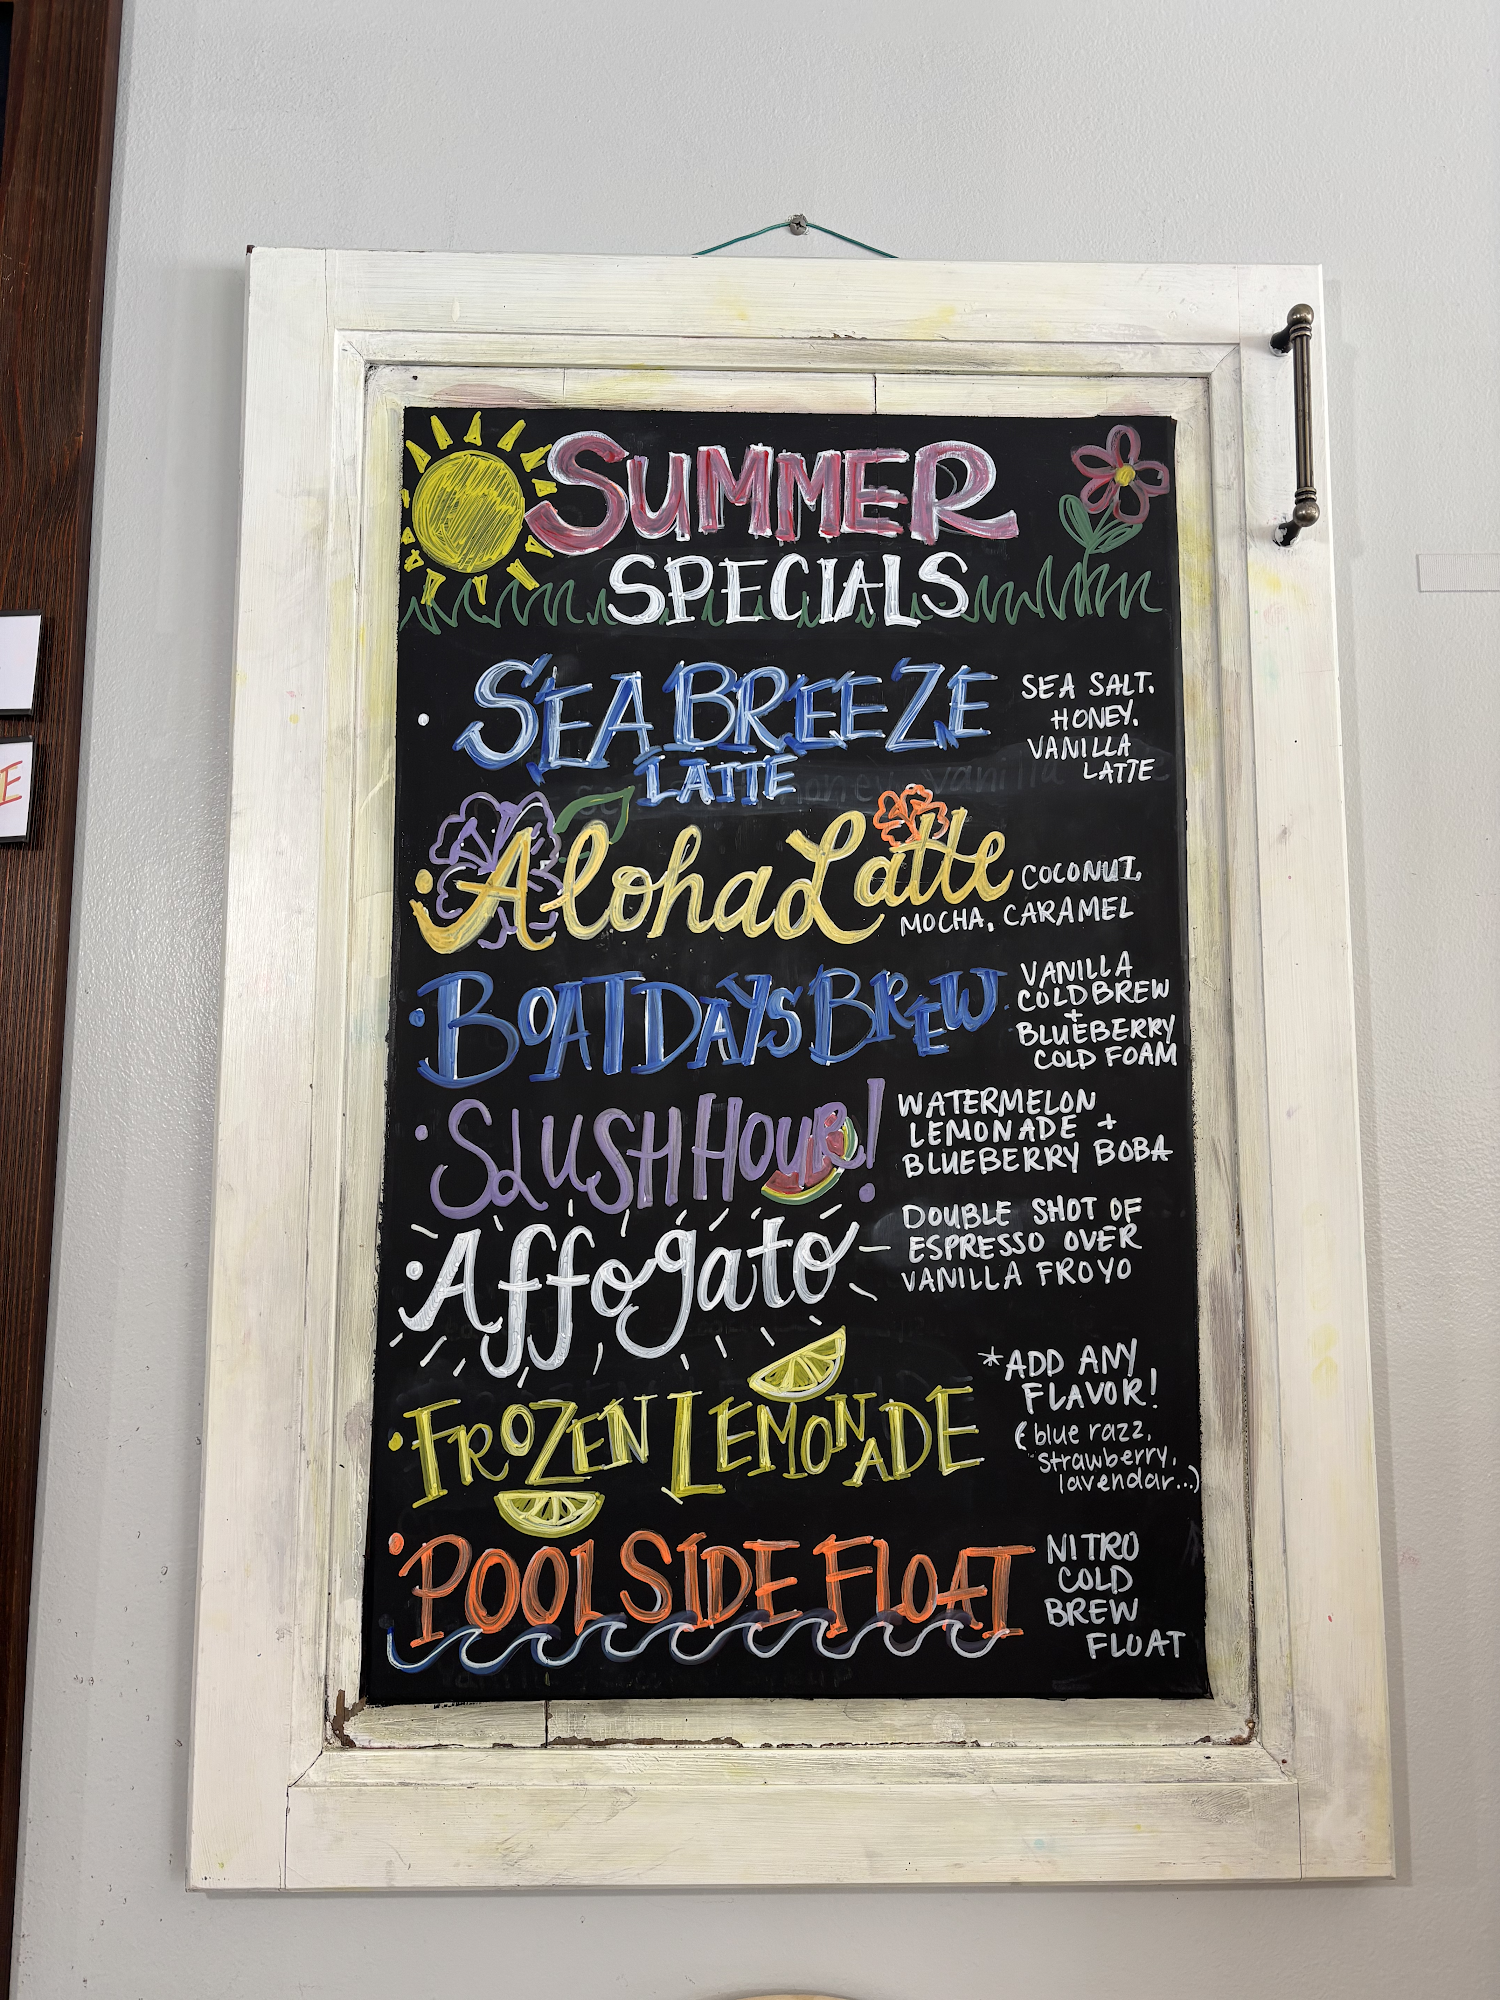 SUMMER
SPECIALS
SEA BREEZE
LATTE
SEA SALT.
HONEY.
VANILLA
LATTE
Aloha Latte
COCONUT,
MOCHA, CARAMEL
BOAT DAYS BREW
VANILLA
COLD BREW
+
BLUEBERRY
COLD FOAM
SLUSH HOUR!
WATERMELON
LEMONADE +
BLUEBERRY BOBA
Affogato
DOUBLE SHOT OF
ESPRESSO OVER
VANILLA FROYO
FROZEN LEMONADE
*ADD ANY
FLAVOR!
(blue razz,
strawberry,
lavendar...)
POOL SIDE FLOAT
NITRO
COLD
BREW
FLOAT